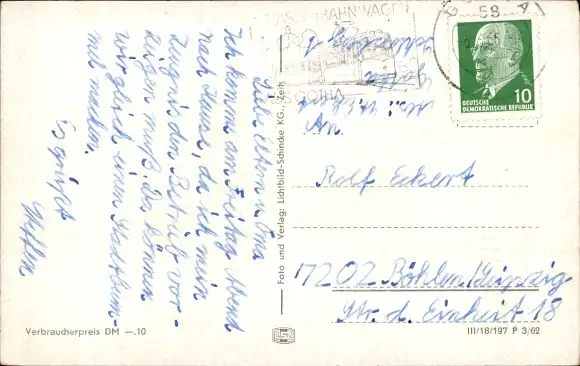 STRASSENBAHNWAGEN
AUS GOTHA
58
DEUTSCHE
DEMOKRATISCHE REPUBLIK
10
Liebe Eltern u. Oma
Ich komme am Freitag Abend
nach Hause, da ich mein
Zeugnis dem Betrieb vor-
zeigen muß. Da können
wir gleich einen Stadtbum-
mel machen.
Es grüßt
Steffen
Gotha
An.
Rolf Eckert
7202 Böhlen/Leipzig
Str. d. Einheit 18
Foto und Verlag: Lichtbild-Schincke KG., Zeitz
Verbraucherpreis DM —.10
III/18/197 P 3/62